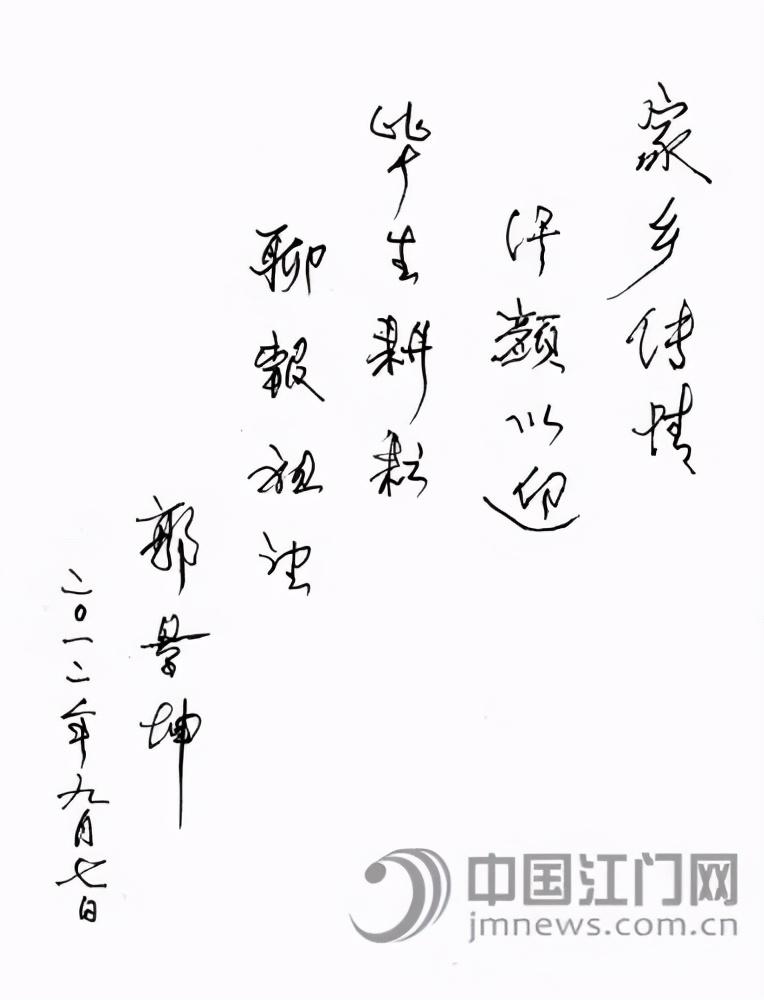 家乡传情
汗颜以迎
毕生耕耘
聊報祖
郭景坤
二〇一二年九月七日
中国江门网
jmnews.com.cn